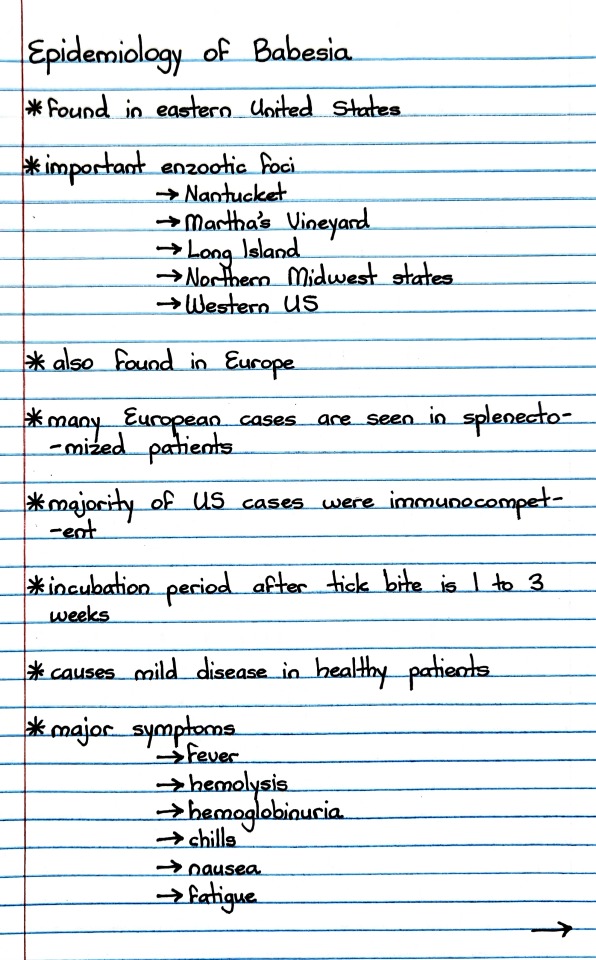 Epidemiology of Babesia
* found in eastern United States
* important enzootic foci
→ Nantucket
→ Martha's Vineyard
→ Long Island
→ Northern Midwest states
→ Western US
* also found in Europe
* many European cases are seen in splenecto-
-mized patients
* majority of US cases were immunocompet-
-ent
* incubation period after tick bite is 1 to 3
weeks
* causes mild disease in healthy patients
* major symptoms
→ fever
→ hemolysis
→ hemoglobinuria
→ chills
→ nausea
→ fatigue
→